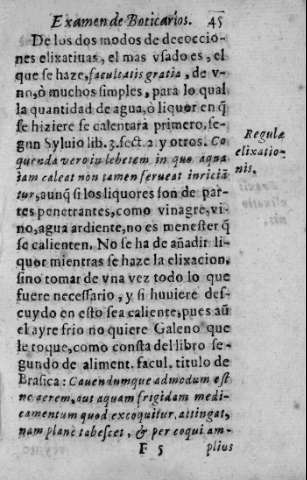 Examen de Boticarios. 45
De los dos modos de decoccio-
nes elixatiuas, el mas vsado es, el
que se haze, facultatis gratia, de v-
no, ò muchos simples, para lo qual
la quantidad de agua, ò liquor en q̃
se hiziere se calentarà primero, se-
gun Syluio lib. 3. sect. 2. y otros. Co
quenda vero in lebetem in quo aqua
iam caleat non tamen ferueat iniiciã
tur, aunq̃ si los liquores son de par-
tes penetrantes, como vinagre, vi-
no, agua ardiente, no es menester q̃
se calienten. No se ha de añadir li-
quor mientras se haze la elixacion,
sino tomar de vna vez todo lo que
fuere necessario, y si huuiere des-
cuydo en esto sea caliente, pues aũ
el ayre frio no quiere Galeno que
le toque, como consta del libro se-
gundo de aliment. facul. titulo de
Brasica: Cauendumque admodum est
ne aerem, aut aquam frigidam medi-
camentum quod excoquitur, attingat,
nam planè tabescet, & per coqui am-
F 5 plius
Regulæ
elixatio-
nis.